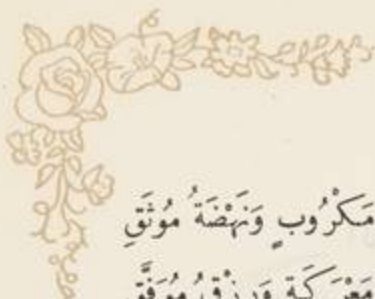 مَكْرُوبٍ وَنَهْضَةُ مُوثَقِ
مَعْرَكَةٍ وَرِزْقُ مُوَفَّقِ